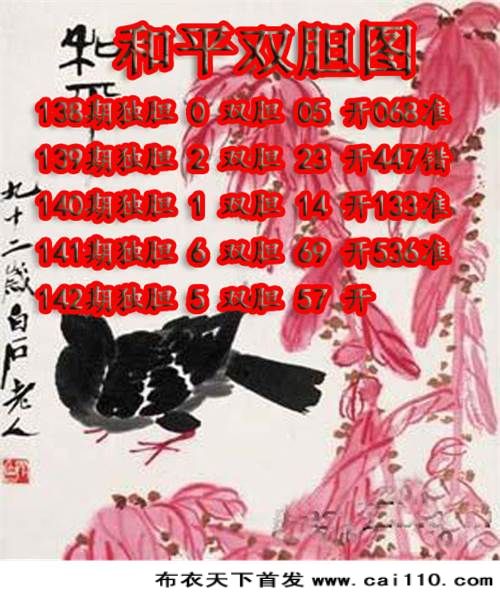 和平双胆图
138期独胆 0 双胆 05 开068准
139期独胆 2 双胆 23 开447错
140期独胆 1 双胆 14 开133准
141期独胆 6 双胆 69 开536准
142期独胆 5 双胆 57 开
和平
九十二岁白石老人
布衣天下首发 www.cai110.com